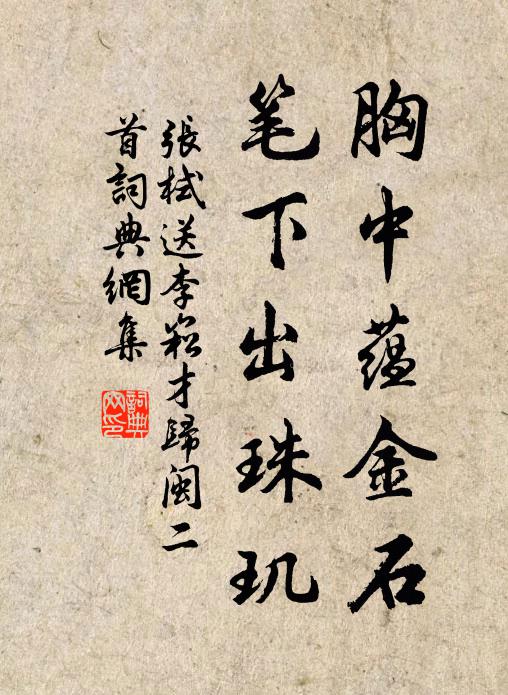 胸中蕴金石
笔下出珠玑
張栻送李崧才歸闽二
首詞典網集
詞典網印